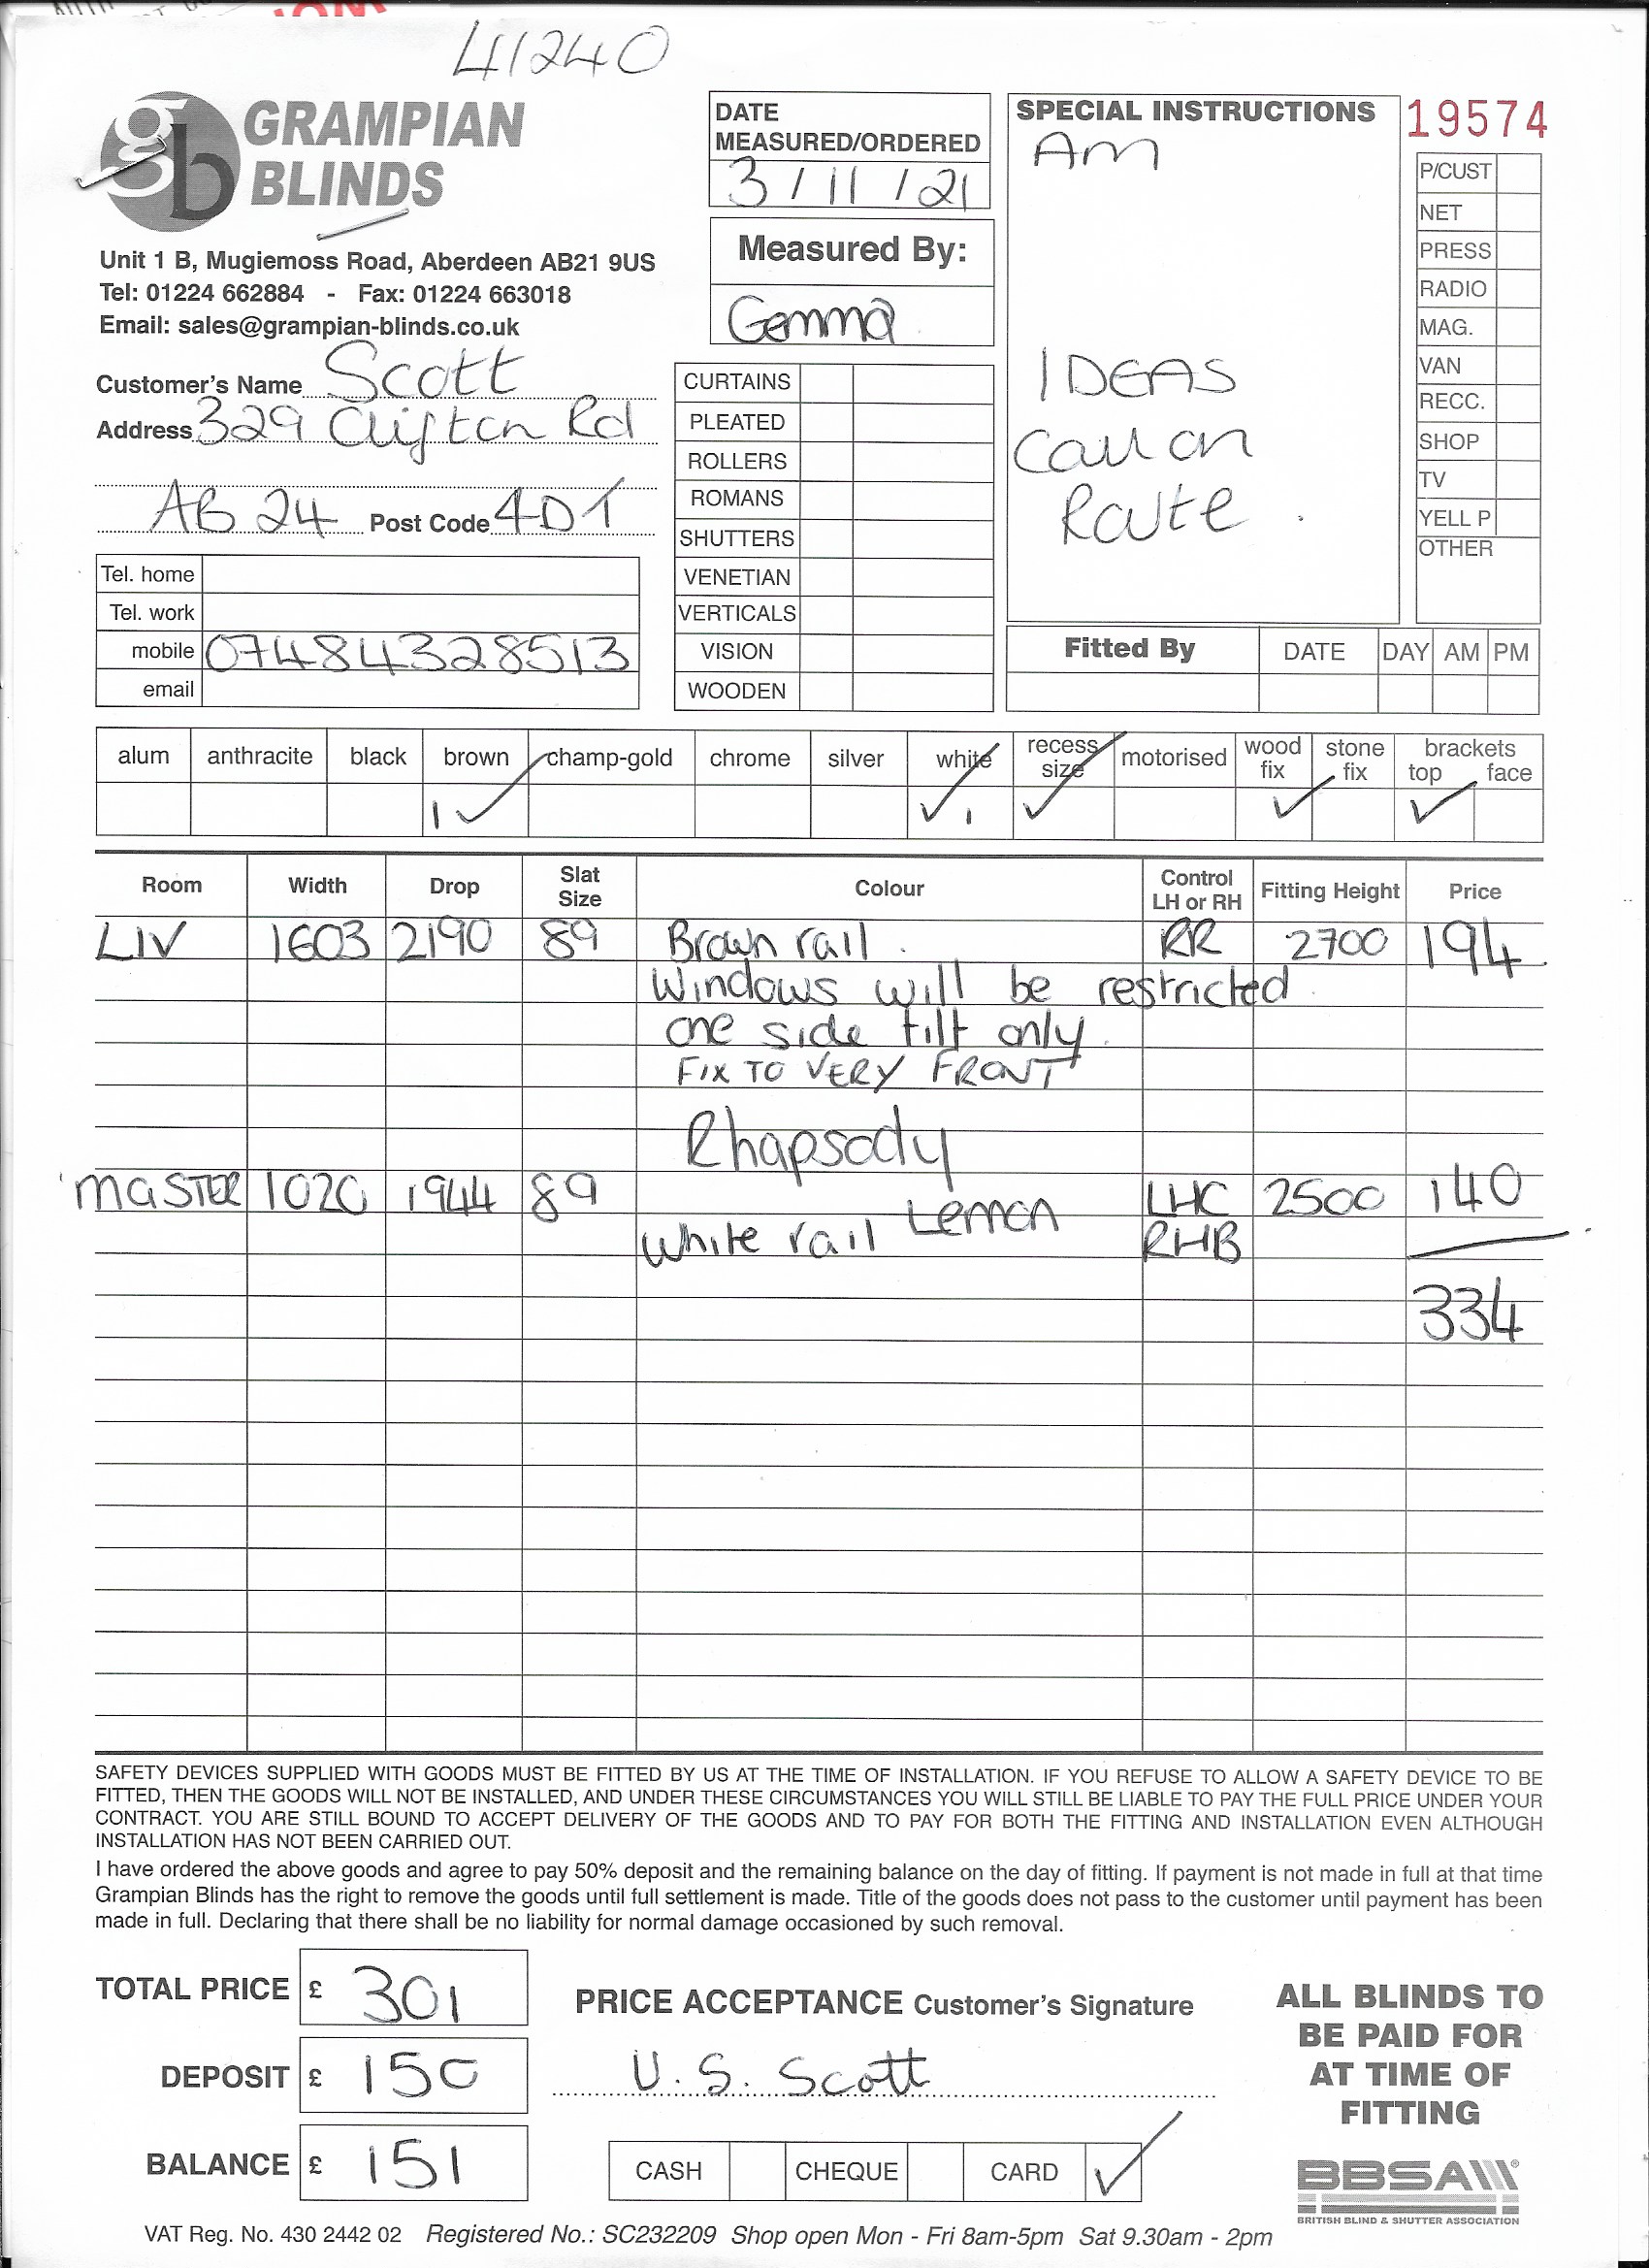 41240
GRAMPIAN
BLINDS
Unit 1 B, Mugiemoss Road, Aberdeen AB21 9US
Tel: 01224 662884 - Fax: 01224 663018
Email: sales@grampian-blinds.co.uk
Customer's Name Scott
Address 329 Clifton Rd
AB 24 Post Code 4DT
Tel. home
Tel. work
mobile 07484328513
email
DATE
MEASURED/ORDERED
3 / 11 / 21
Measured By:
Gemma
CURTAINS
PLEATED
ROLLERS
ROMANS
SHUTTERS
VENETIAN
VERTICALS
VISION
WOODEN
SPECIAL INSTRUCTIONS
Am
IDEAS
Call on
Route.
19574
P/CUST
NET
PRESS
RADIO
MAG.
VAN
RECC.
SHOP
TV
YELL P
OTHER
Fitted By DATE DAY AM PM
alum anthracite black brown champ-gold chrome silver white recess size motorised wood fix stone fix brackets top face
1 ✓ ✓ 1 ✓ ✓ ✓
Room Width Drop Slat Size Colour Control LH or RH Fitting Height Price
LIV 1603 2190 89 Brown rail. RR 2700 194
Windows will be restricted
one side tilt only.
FIX TO VERY FRONT
Rhapsody
MASTER 1020 1944 89 Lemon LHC 2500 140
White rail RHB
334
SAFETY DEVICES SUPPLIED WITH GOODS MUST BE FITTED BY US AT THE TIME OF INSTALLATION. IF YOU REFUSE TO ALLOW A SAFETY DEVICE TO BE
FITTED, THEN THE GOODS WILL NOT BE INSTALLED, AND UNDER THESE CIRCUMSTANCES YOU WILL STILL BE LIABLE TO PAY THE FULL PRICE UNDER YOUR
CONTRACT. YOU ARE STILL BOUND TO ACCEPT DELIVERY OF THE GOODS AND TO PAY FOR BOTH THE FITTING AND INSTALLATION EVEN ALTHOUGH
INSTALLATION HAS NOT BEEN CARRIED OUT.
I have ordered the above goods and agree to pay 50% deposit and the remaining balance on the day of fitting. If payment is not made in full at that time
Grampian Blinds has the right to remove the goods until full settlement is made. Title of the goods does not pass to the customer until payment has been
made in full. Declaring that there shall be no liability for normal damage occasioned by such removal.
TOTAL PRICE £ 301
DEPOSIT £ 150
BALANCE £ 151
PRICE ACCEPTANCE Customer's Signature
U. S. Scott
CASH CHEQUE CARD ✓
ALL BLINDS TO
BE PAID FOR
AT TIME OF
FITTING
BBSA
BRITISH BLIND & SHUTTER ASSOCIATION
VAT Reg. No. 430 2442 02 Registered No.: SC232209 Shop open Mon - Fri 8am-5pm Sat 9.30am - 2pm